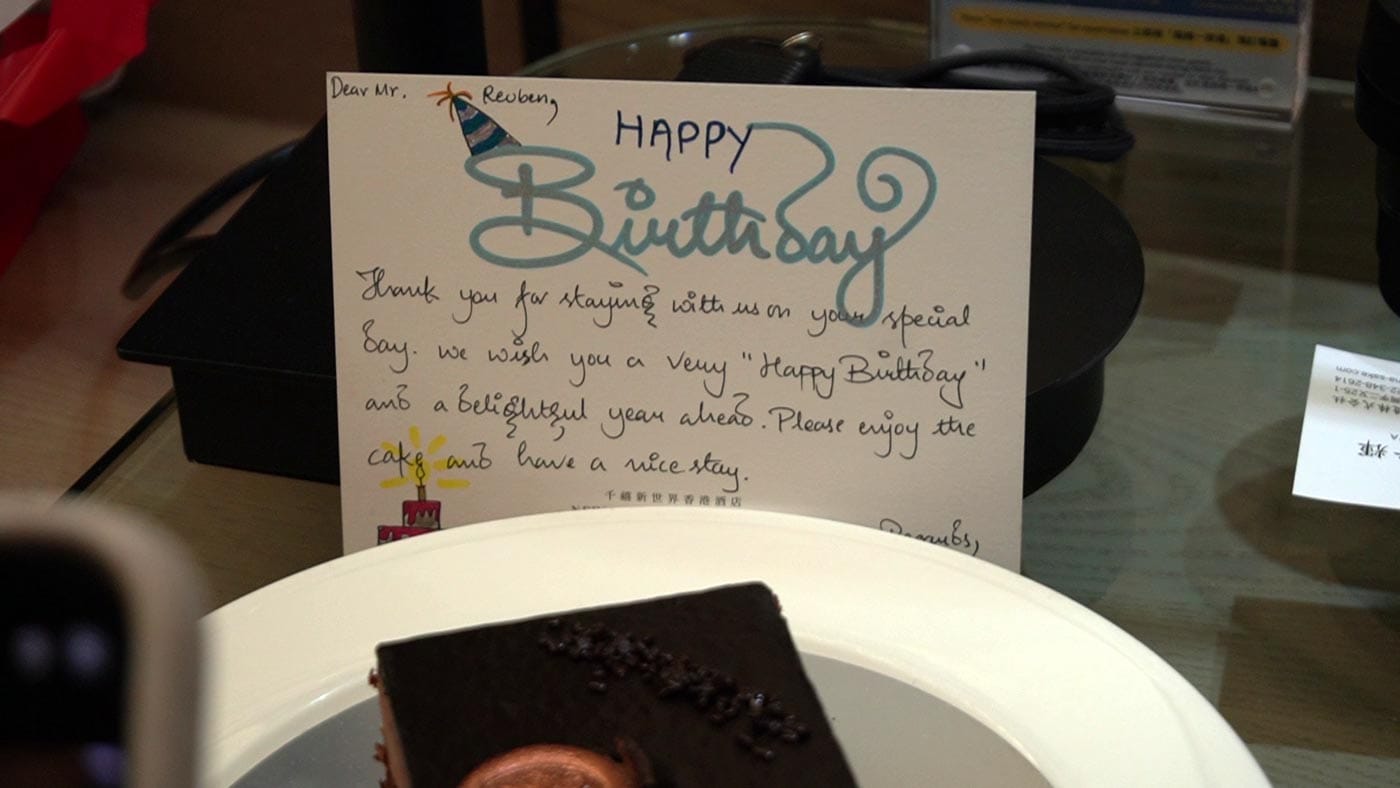 Dear Mr. Reuben,
HAPPY
Birthday
Thank you for staying with us on your special
day. We wish you a very "Happy Birthday"
and a delightful year ahead. Please enjoy the
cake and have a nice stay.
千禧新世界香港酒店